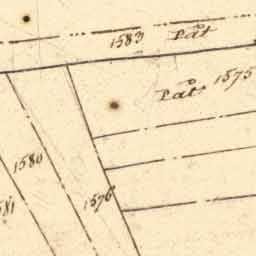 1583 Pat
Pat 1575
1580
1576